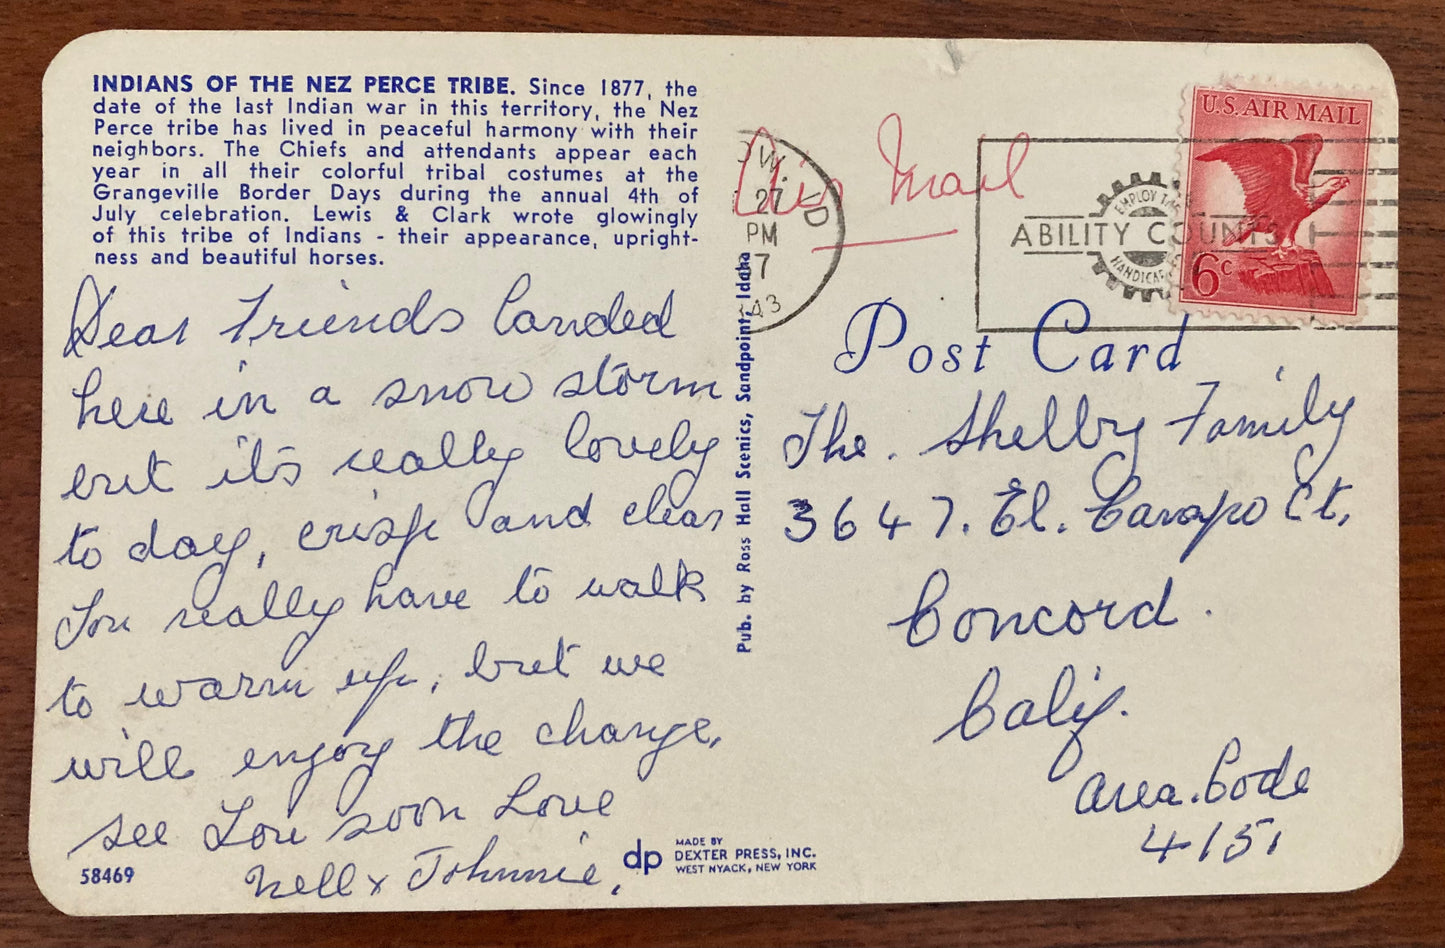 INDIANS OF THE NEZ PERCE TRIBE. Since 1877, the
date of the last Indian war in this territory, the Nez
Perce tribe has lived in peaceful harmony with their
neighbors. The Chiefs and attendants appear each
year in all their colorful tribal costumes at the
Grangeville Border Days during the annual 4th of
July celebration. Lewis & Clark wrote glowingly
of this tribe of Indians - their appearance, upright-
ness and beautiful horses.
Dear Friends Landed
here in a snow storm
but it's really lovely
to day, crisp and clear
You really have to walk
to warm up, but we
will enjoy the change,
see You soon Love
Nell & Johnnie,
58469
dp
MADE BY
DEXTER PRESS, INC.
WEST NYACK, NEW YORK
Pub. by Ross Hall Scenics, Sandpoint, Idaho
OW. ID
27
PM
843
Air Mail
EMPLOY
ABILITY COUNTS
HANDICAP
U.S. AIR MAIL
6c
Post Card
The. Shelby Family
3647. El. Ct.
Concord.
Calif.
Area. Code